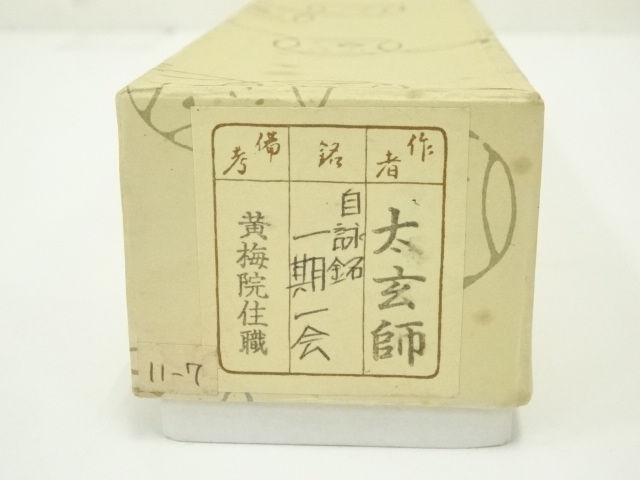 作者
太玄師
銘
自詠銘
一期一会
備考
黄梅院住職
11-7